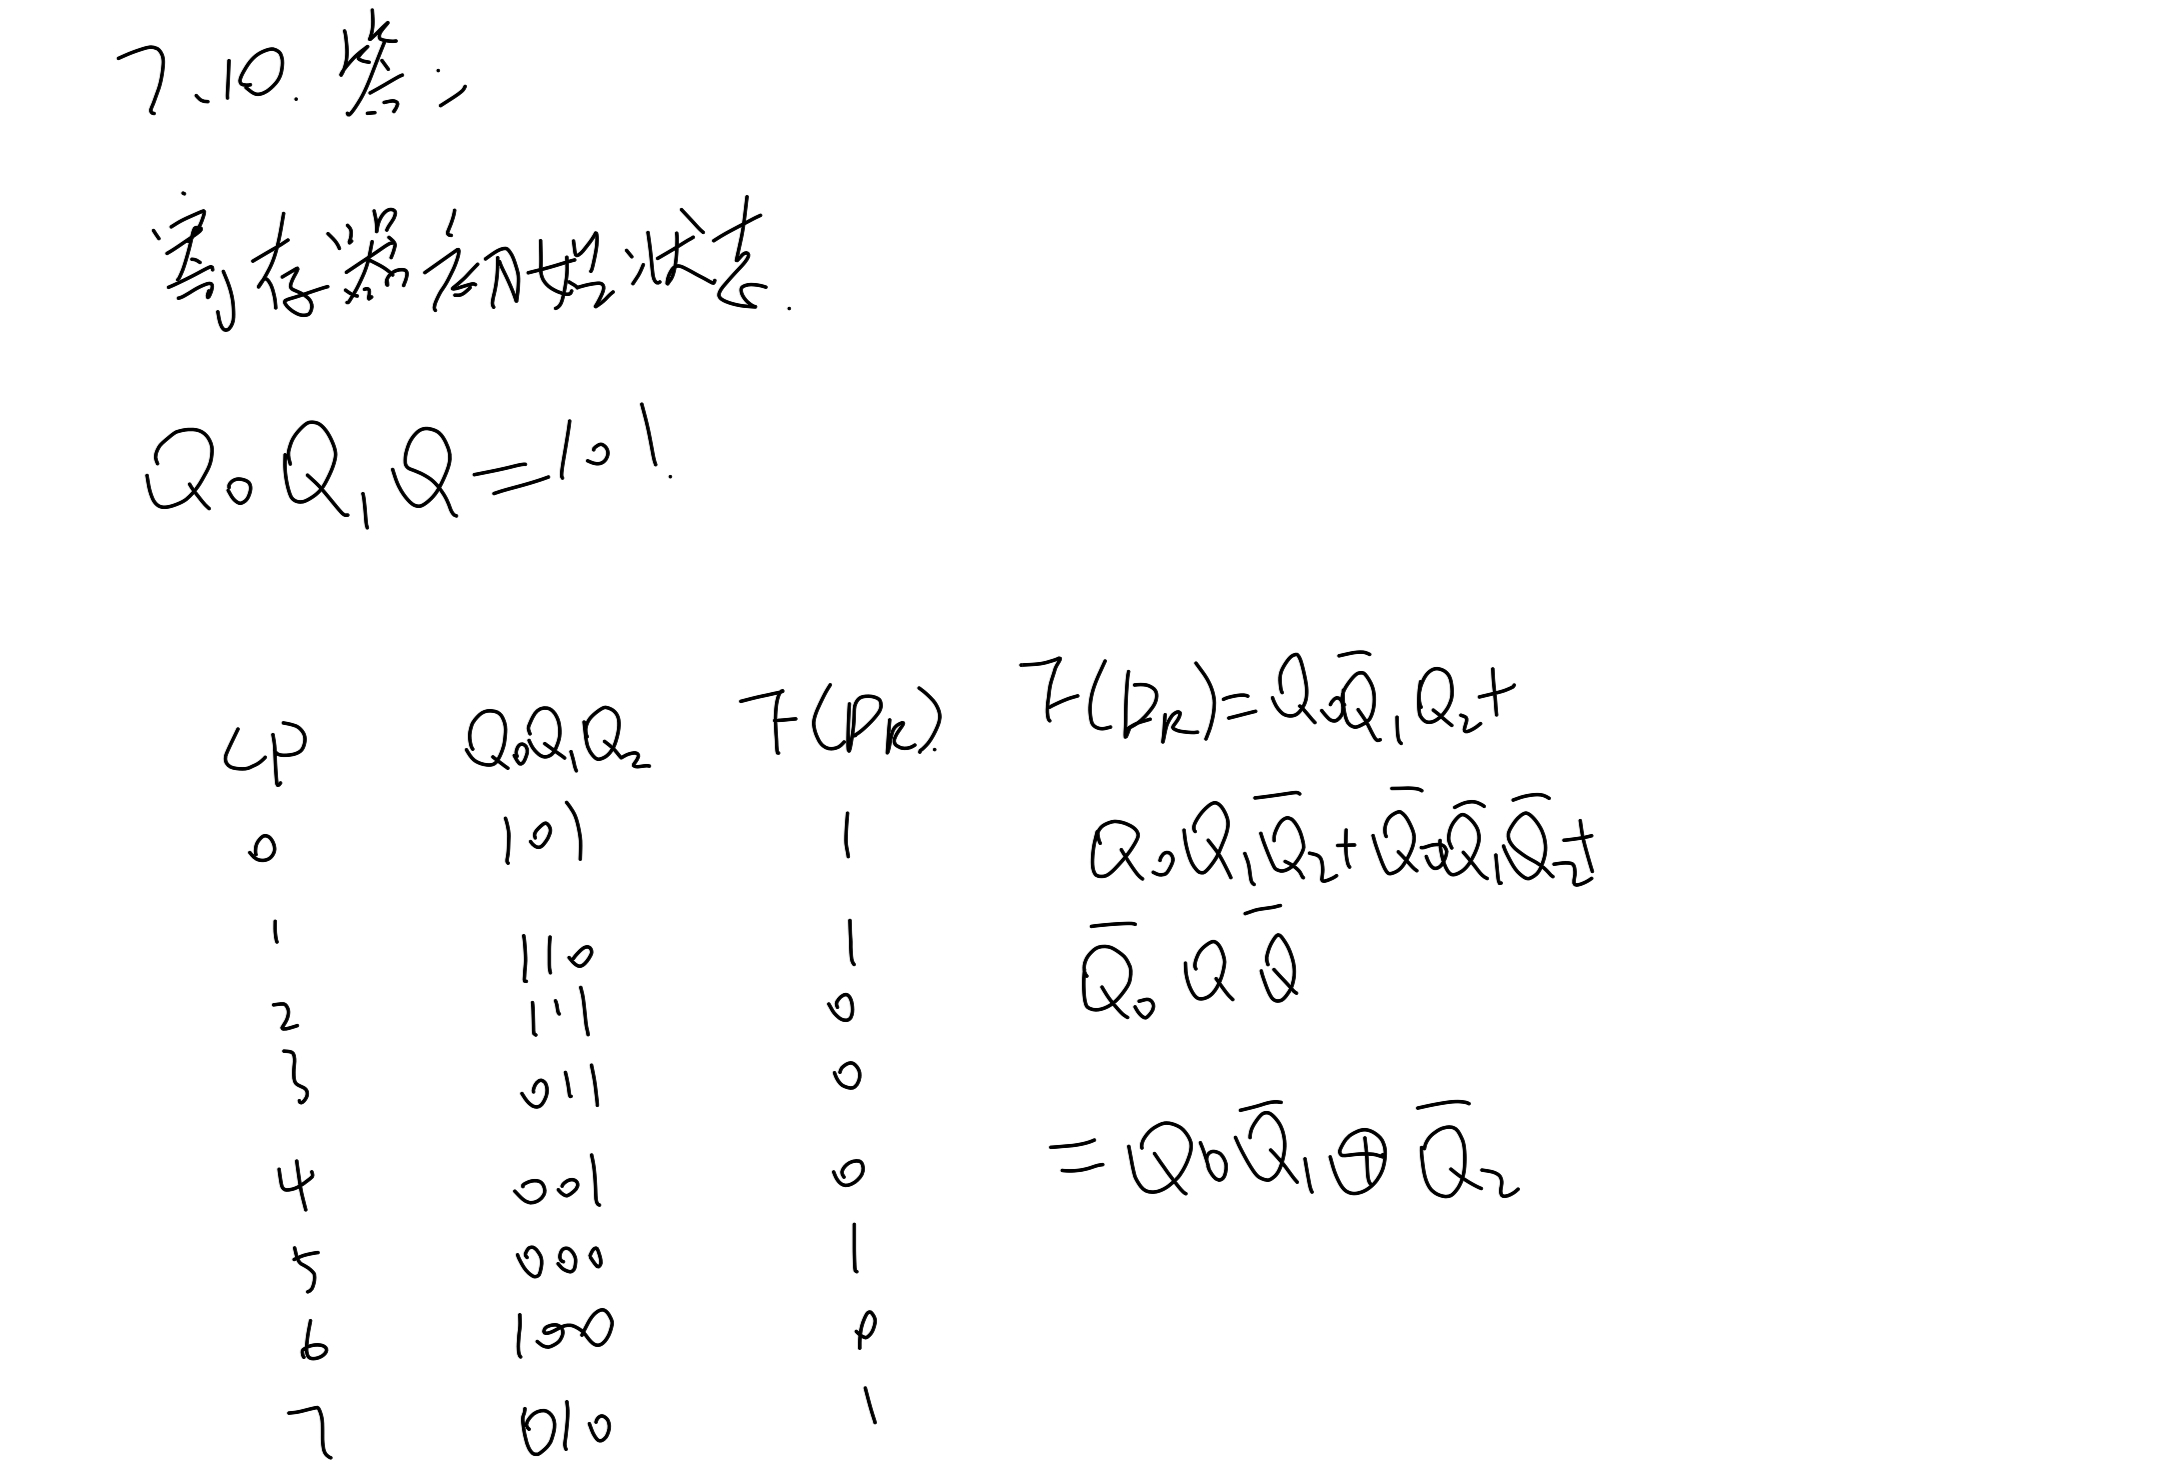 7.10. 答:
寄存器初始状态.
Q₀Q₁Q=101.
CP Q₀Q₁Q₂ F(DR).
0 101 1
1 110 1
2 111 0
3 011 0
4 001 0
5 000 1
6 100 0
7 010 1
F(DR)=Q₀Q̅₁Q₂+
Q₀Q₁Q̅₂+Q̅₀Q̅₁Q̅₂+
Q̅₀QQ̅
=Q₀Q̅₁⊕Q̅₂